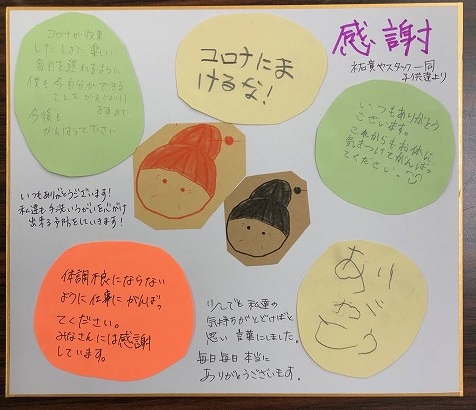 感謝
祐貴やスタッフ一同
子供達より
コロナが収束
したときに楽しい
毎日を送れるように
僕も今自分ができる
ことをがんばり
ますので
今後も
がんばって下さい
コロナにま
けるな！
いつもありがとう
ございます。
これからもお体に
気をつけてがんばっ
てください。
いつもありがとうございます！
私達も手洗いうがいを心がけ
出来る予防をしていきます！
体調不良にならない
ように仕事にがんばっ
てください。
みなさんには感謝
しています。
少しでも私達の
気持ちがとどけばと
思い言葉にしました。
毎日毎日本当に
ありがとうございます。
あり
がとう